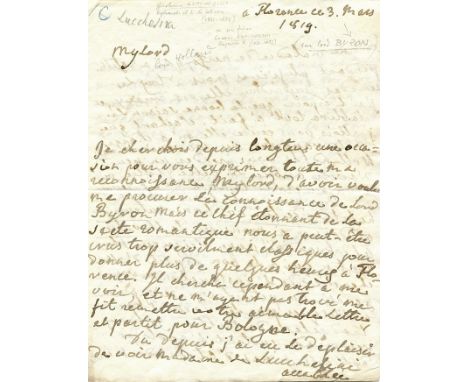 C Lucchesini
a Florence ce 3. Mars
1819.
(sur lord BYRON)
Mylord
Lord Holland
Je cherchois depuis longtems une oca-
sion pour vous exprimer toute ma
reconnoissance Mylord, d'avoir voulu
me procurer la connoissance de Lord
Byron. Mais ce chef étonnant de la
secte romantique nous a peut-être
crus trop servilement classiques pour
donner plus de quelques heures à Flo-
rence. Il chercha cependant à me
voir, et ne m'ayant pas trouvé me
fit remettre votre aimable Lettre
et partit pour Bologne.
Du depuis j'ai eu le déplaisir
de voir Madame de Lucchesini